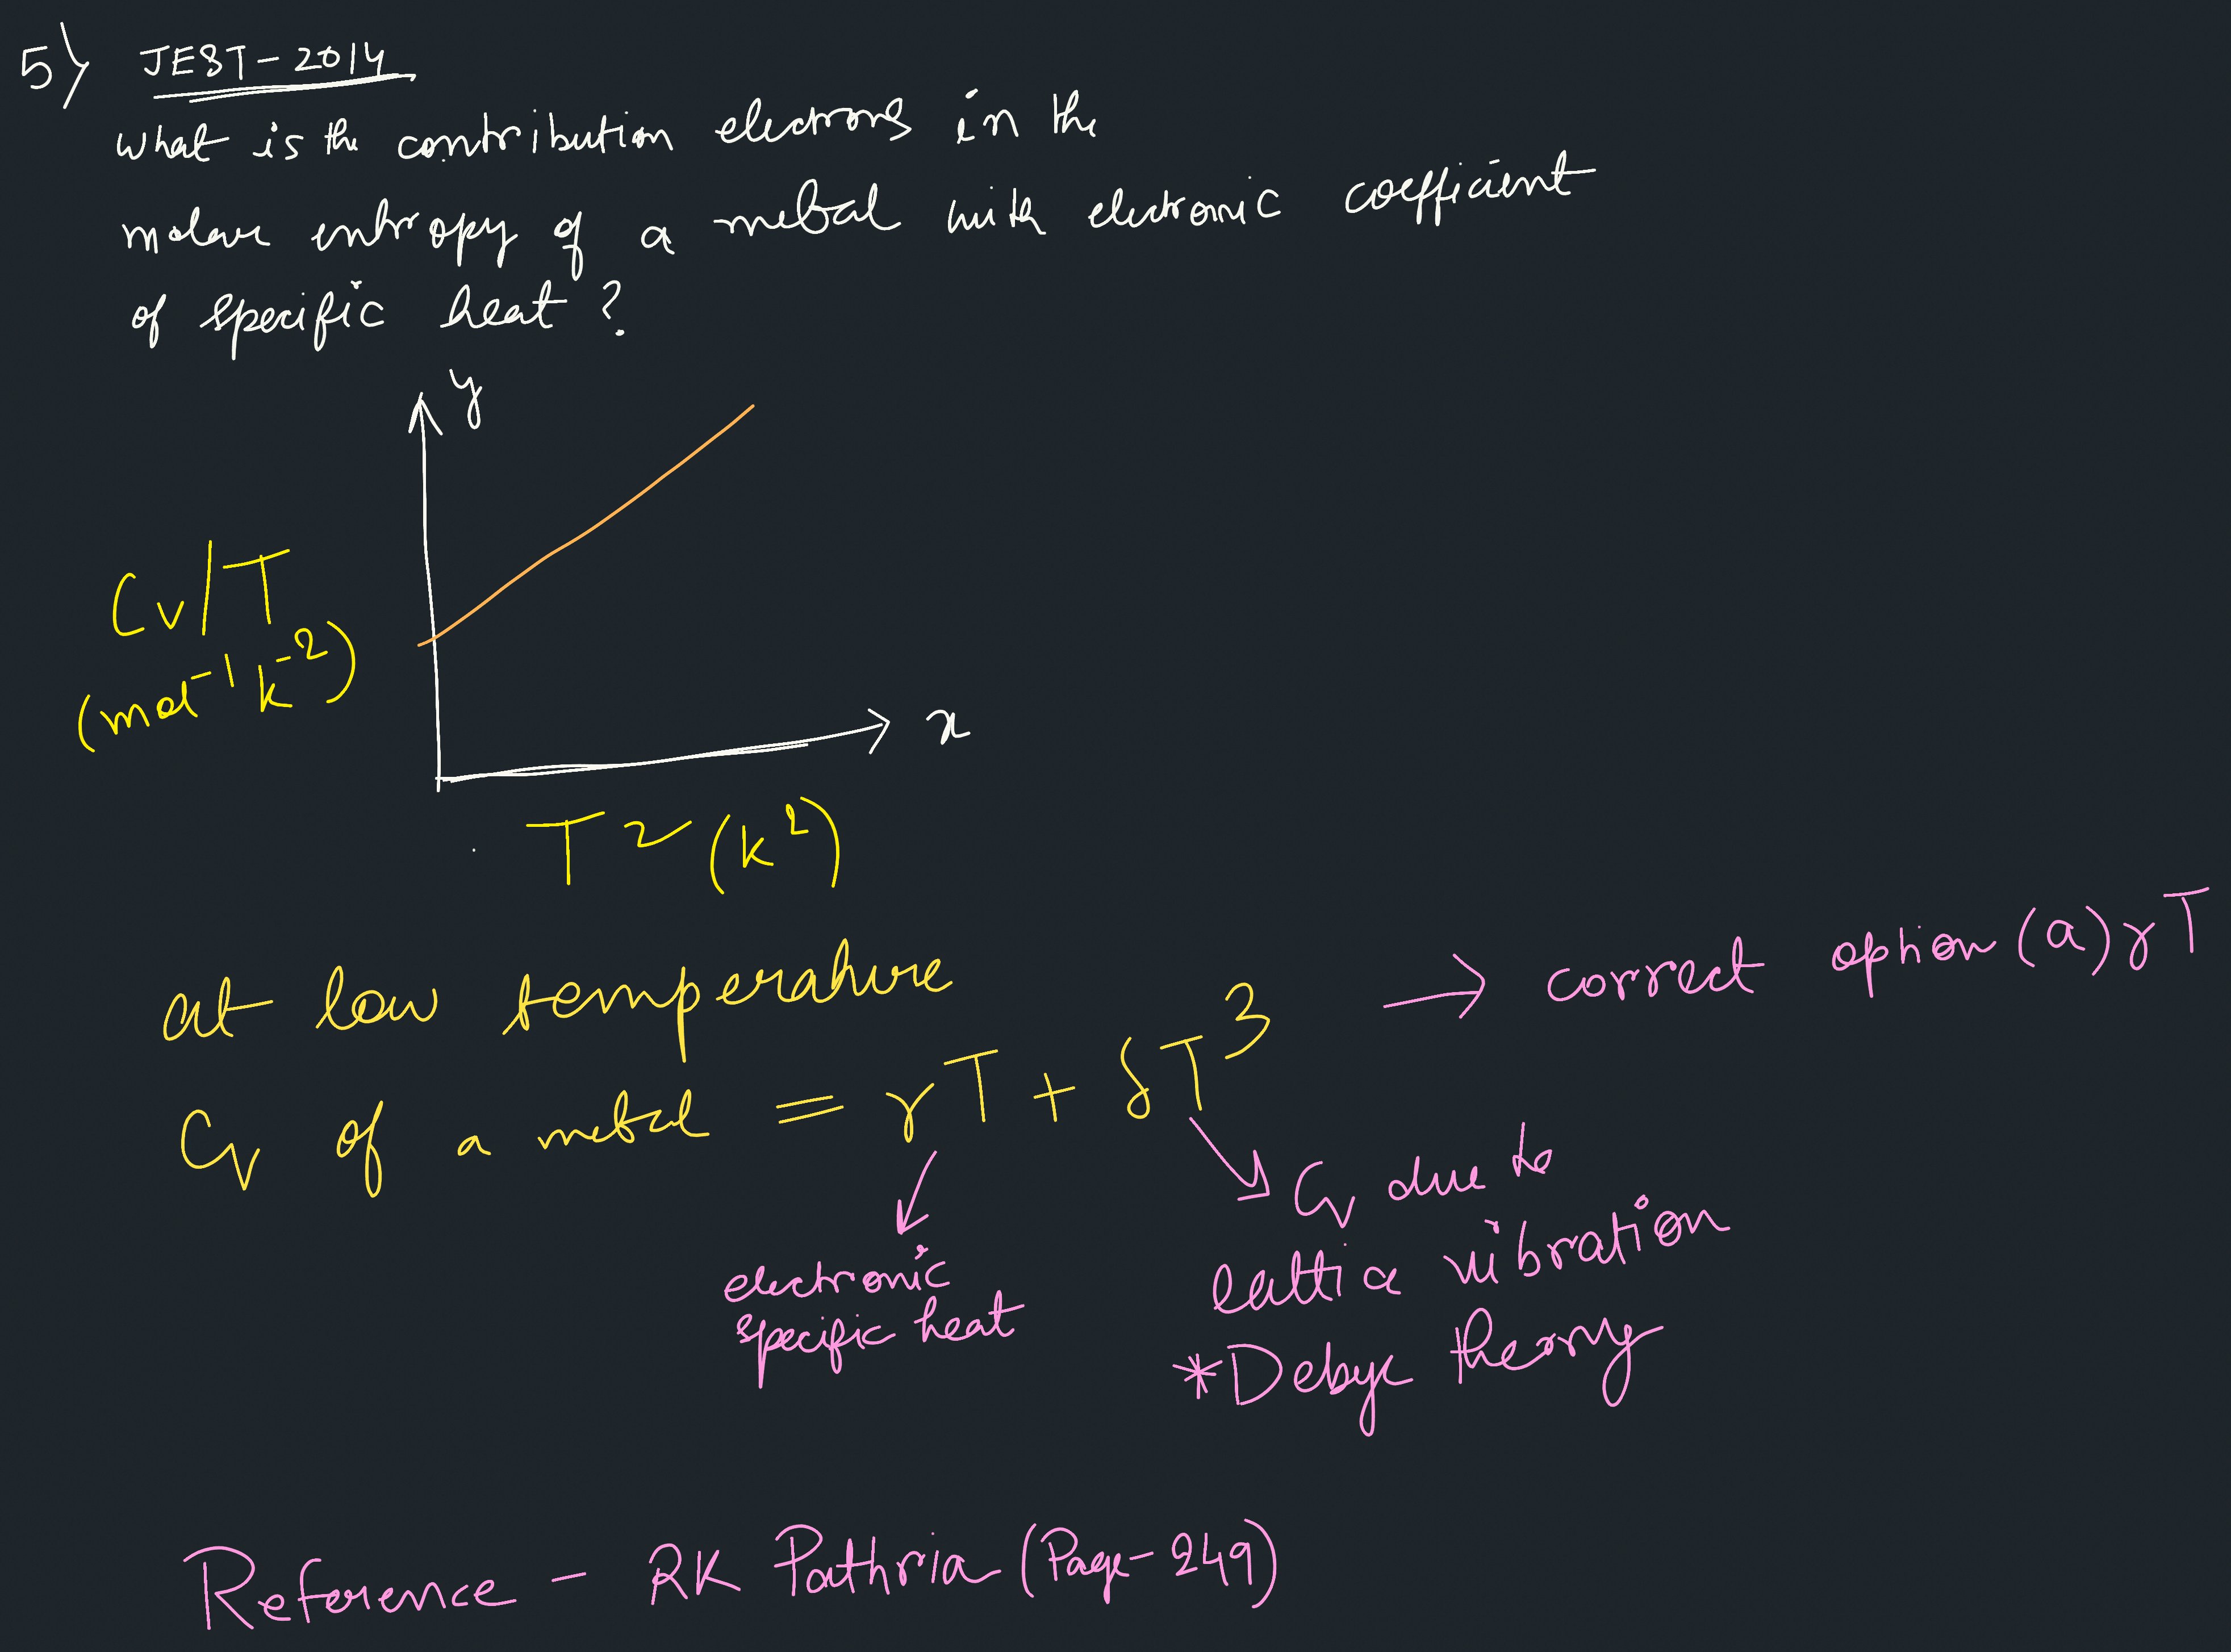 5) JEST-2014
what is the contribution electrons in the
molar entropy of a metal with electronic coefficient
of specific heat ?
y
Cv/T
(mol⁻¹ k⁻²)
x
T² (k²)
at low temperature
Cv of a metal = γT + δT³ → correct option (a) γT
electronic
specific heat
Cv due to
lattice vibration
*Debye theory
Reference - RK Pathria (Page-249)